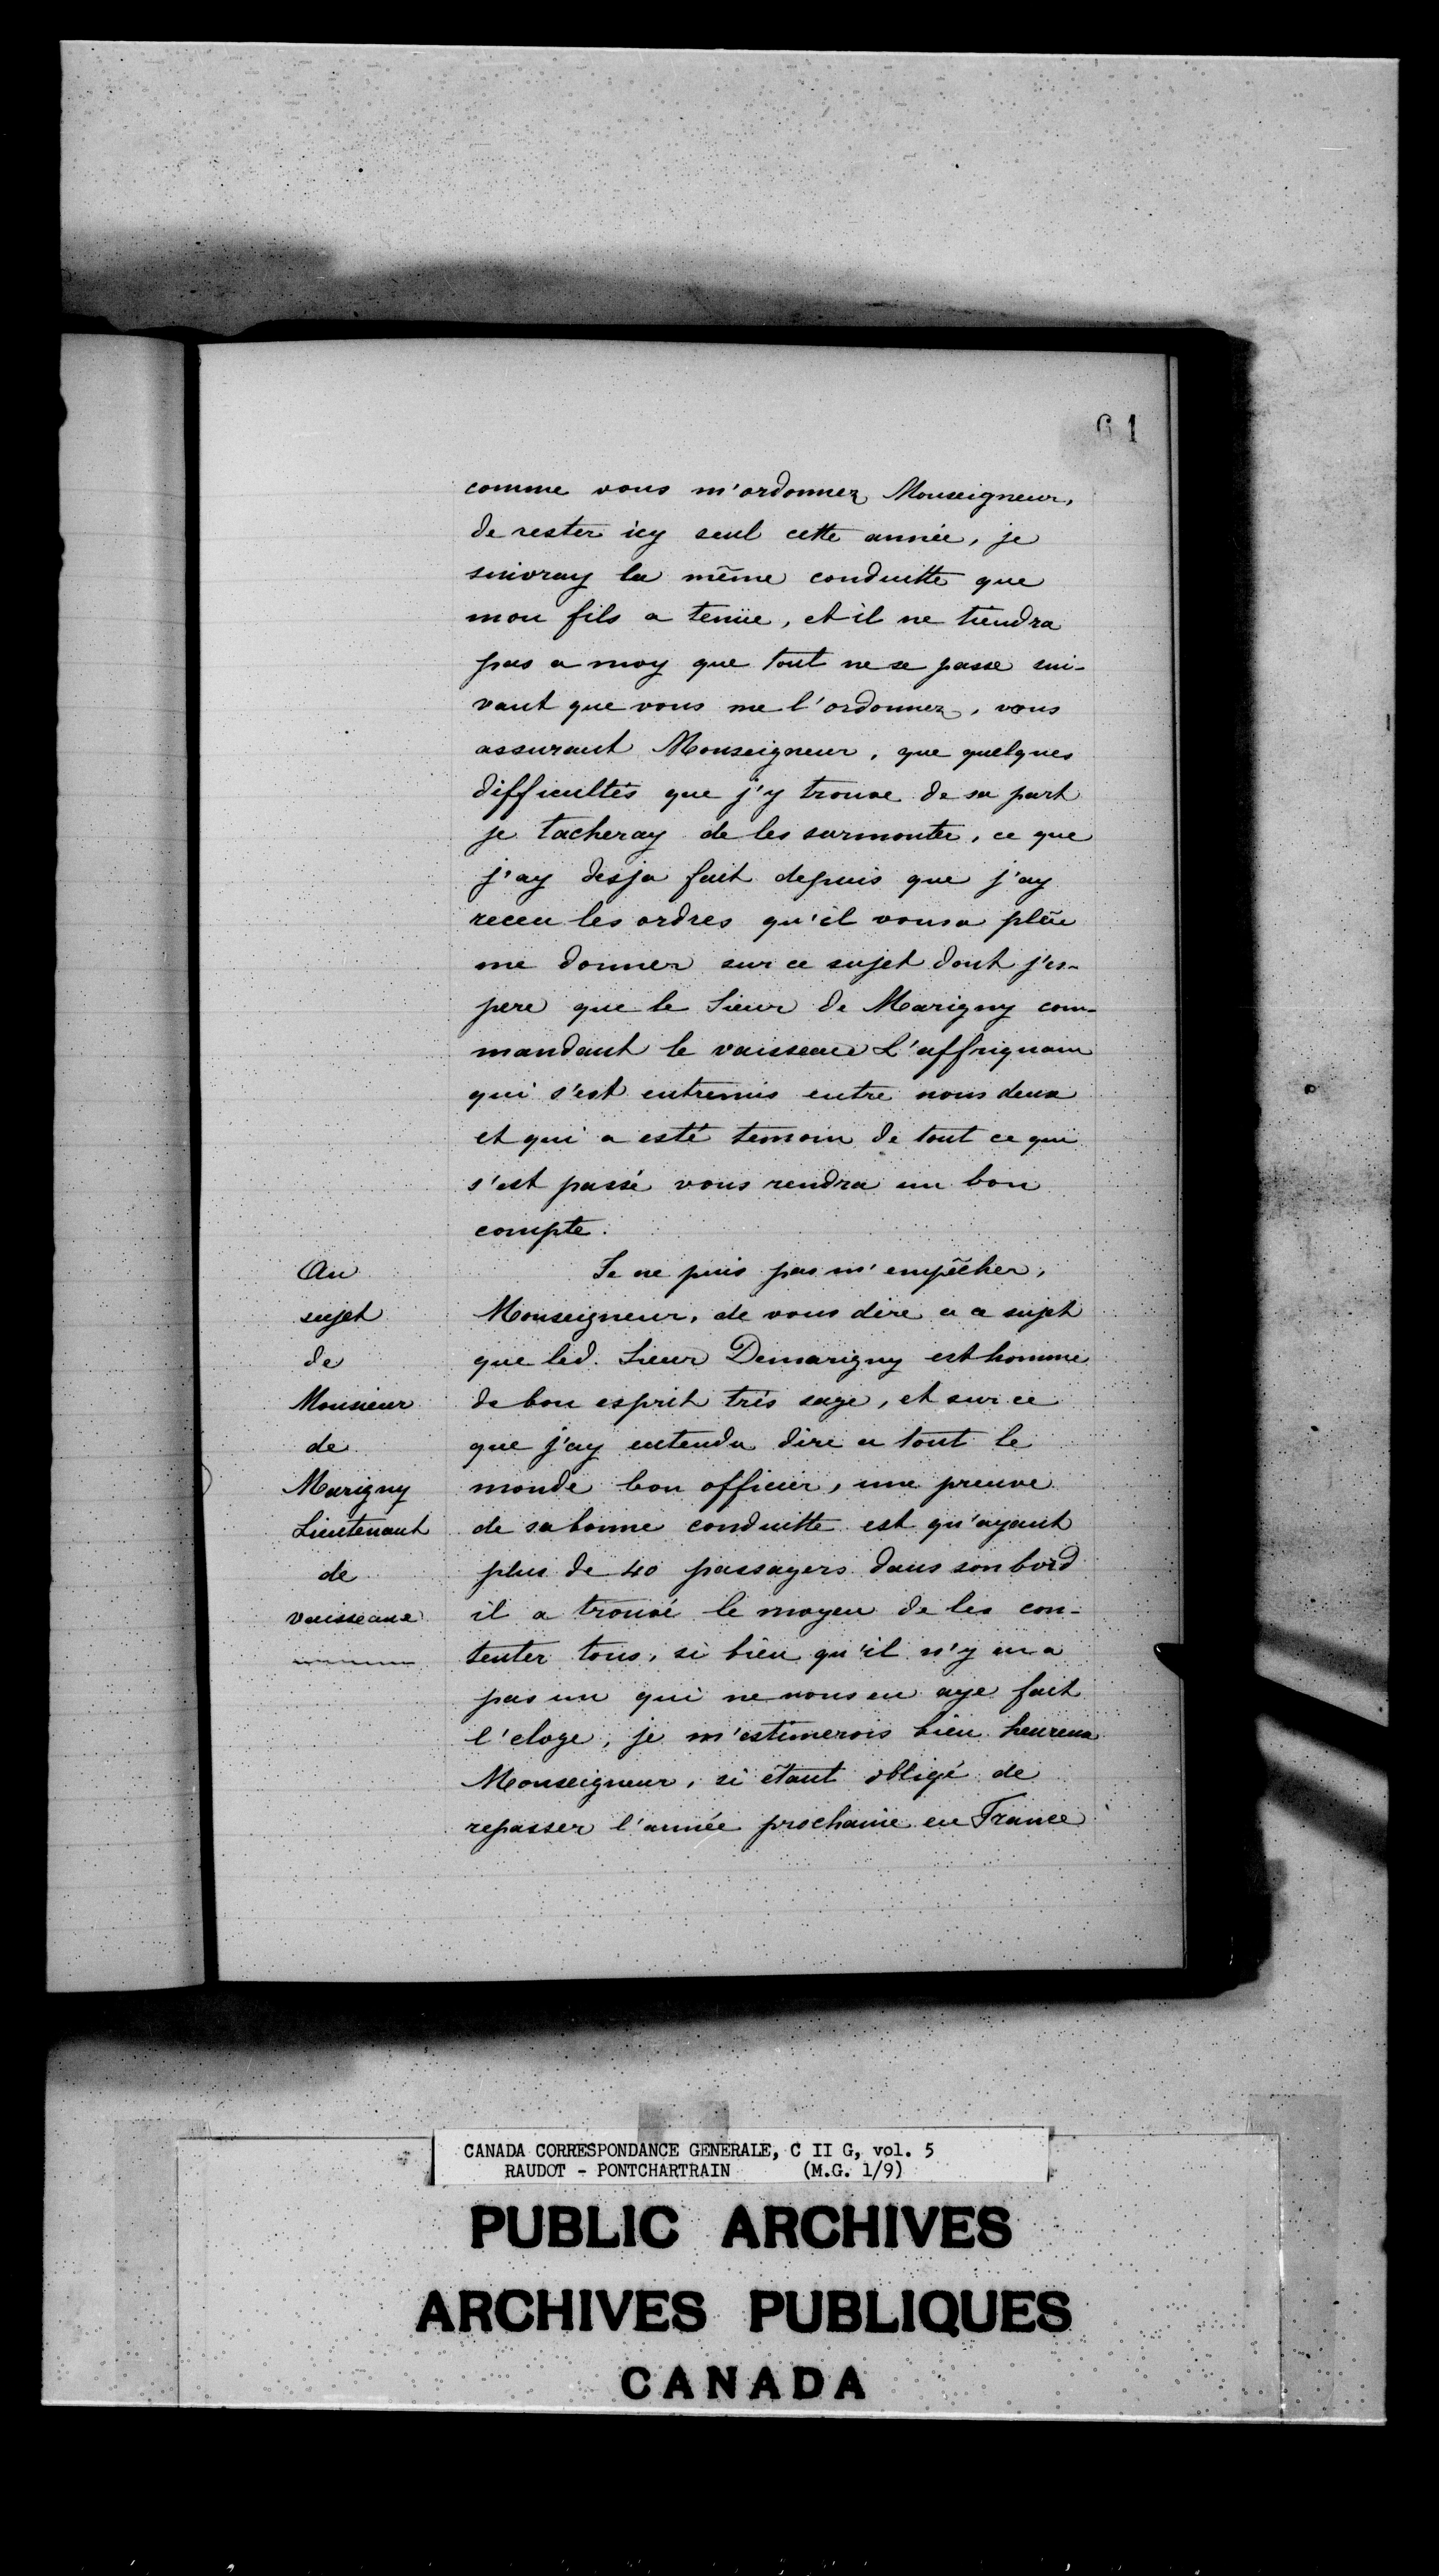 61
comme vous m'ordonnez Monseigneur,
de rester icy seul cette année, je
suivray la même conduitte que
mon fils a tenüe, et il ne tiendra
pas a moy que tout ne se passe sui-
vant que vous me l'ordonnez, vous
assurant Monseigneur, que quelques
difficultés que j'y trouve de sa part
je tacheray de les surmonter, ce que
j'ay desja fait depuis que j'ay
receu les ordres qu'il vous a plêu
me donner sur ce sujet dont j'es-
pere que le Sieur de Marigny com-
mandant le vaisseau L'affriquain
qui s'est entremis entre nous deux
et qui a esté temoin de tout ce qui
s'est passé vous rendra un bon
compte.
Au
sujet
de
Monsieur
de
Marigny
Lieutenant
de
vaisseaue
Je ne puis pas m'empêcher,
Monseigneur, de vous dire a ce sujet
que led. Sieur Demarigny est homme
de bon esprit trés sage, et sur ce
que j'ay entendu dire a tout le
monde bon officier, une preuve
de sa bonne conduitte est qu'ayant
plus de 40 passagers dans son bord
il a trouvé le moyen de les con-
tenter tous, si bien qu'il n'y en a
pas un qui ne nous en aye fait
l'eloge, je m'estimerois bien heureux
Monseigneur, si êtant obligé de
repasser l'année prochaine en France
CANADA CORRESPONDANCE GENERALE, C II G, vol. 5
RAUDOT - PONTCHARTRAIN (M.G. 1/9)
PUBLIC ARCHIVES
ARCHIVES PUBLIQUES
CANADA